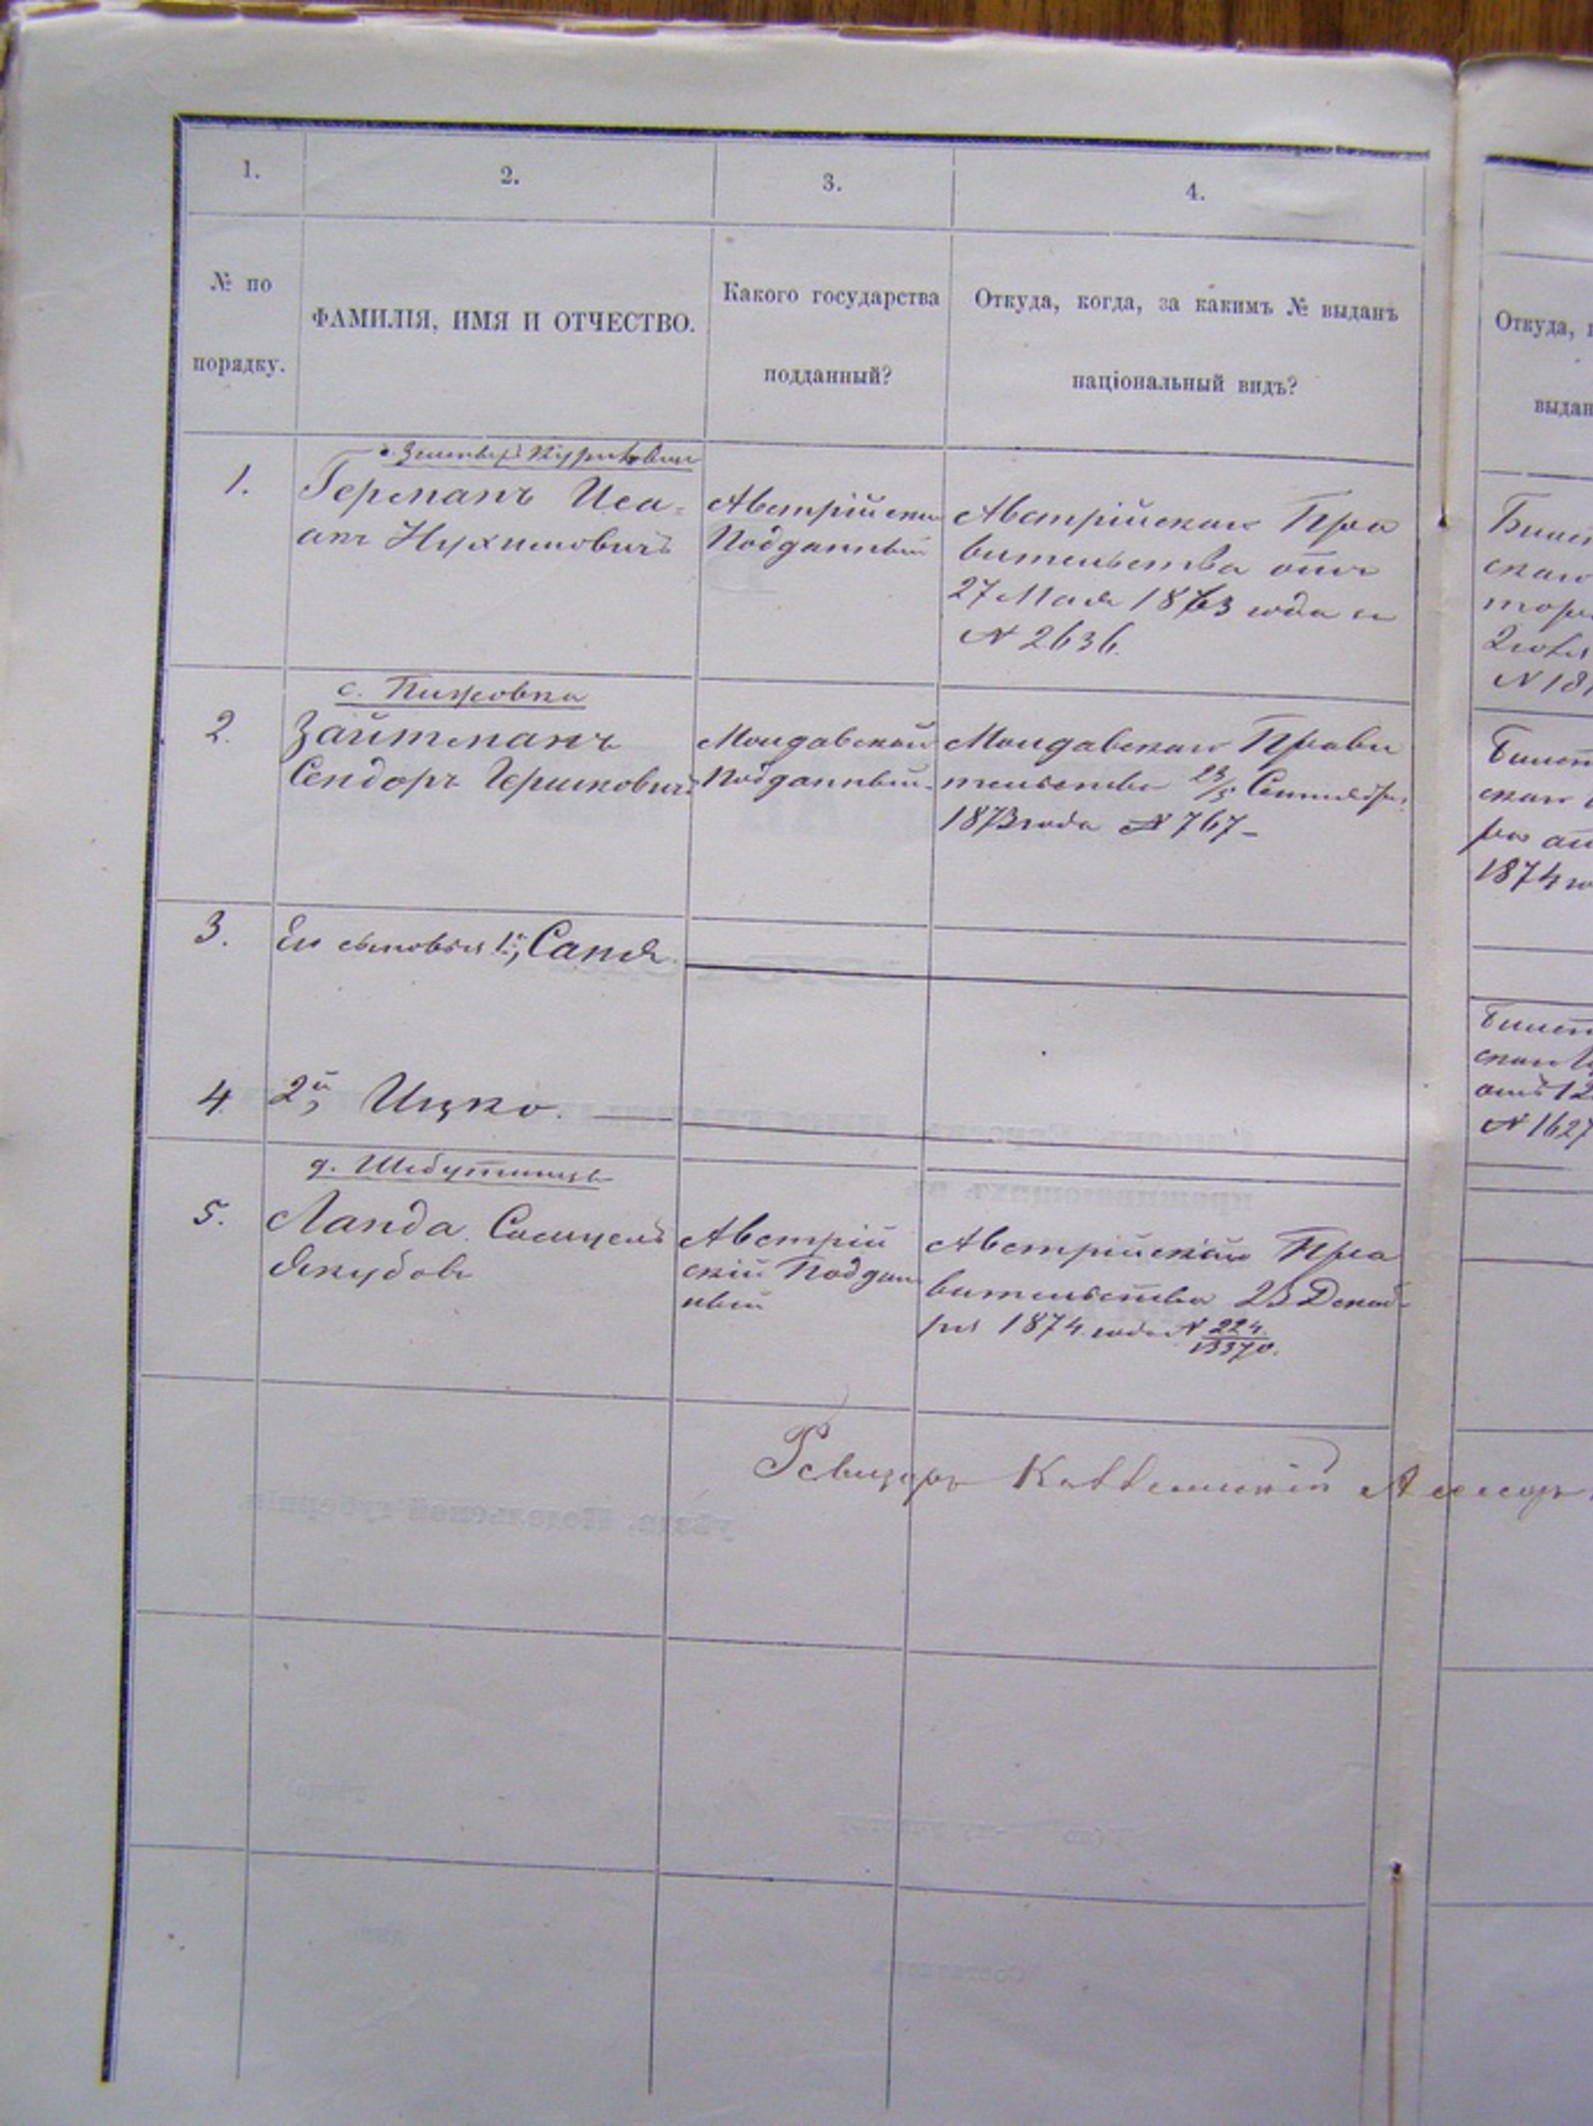 1.
2.
3.
4.
№ по
порядку.
ФАМИЛІЯ, ИМЯ И ОТЧЕСТВО.
Какого государства
подданный?
Откуда, когда, за какимъ № выданъ
національный видъ?
Откуда,
выдан
1.
Германъ Иса-
акъ Нухимовичъ
Австрійскій
Подданный
Австрійскаго Пра
вительства отъ
27 Мая 1863 года за
№ 2636.
2.
Зайтманъ
Сендоръ Гершковичъ
Молдавскій
Подданный.
Молдавскаго Прави
тельства 23/5 Сентября
1873 года № 767
3.
Его сыновья 1й, Саня
4
2й, Ицко.
д. Шебутинцы
5.
Ланда Самуель
Якубовъ
Австрій
скій Поддан
ный
Австрійскаго Пра
вительства 23 Декаб-
ря 1874 года №
224
Билет
скаго
№ 18
Билет
скаго
1874 го
Билет
скаго
отъ 12
№ 1627
Асесоръ
уѣзда, Подольской губерніи.